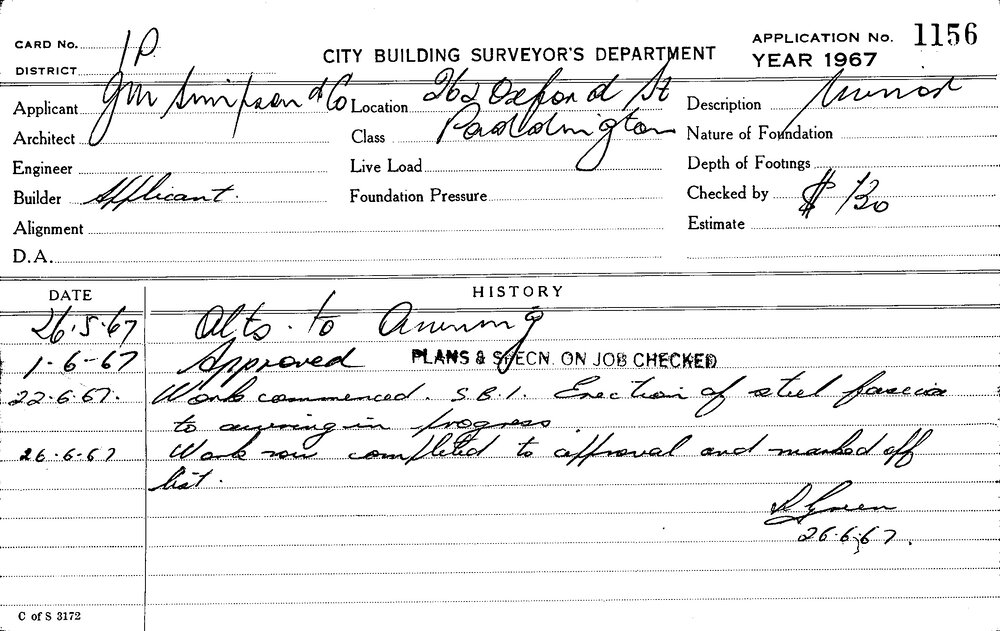 CARD No. 1P
DISTRICT
CITY BUILDING SURVEYOR'S DEPARTMENT
APPLICATION No. 1156
YEAR 1967
Applicant JM Simpson & Co Location 262 Oxford St Description Minor
Architect Class Paddington Nature of Foundation
Engineer Live Load Depth of Footings
Builder Applicant. Foundation Pressure Checked by $ 130
Alignment Estimate
D.A.
DATE HISTORY
26.5.67 Alts. to Awning
1-6-67 Approved PLANS & SPECN. ON JOB CHECKED
22.6.67. Work commenced. S.B.1. Erection of steel fascia
to awning in progress
26.6.67 Work now completed to approval and marked off
list.
Green
26.6.67.
C of S 3172